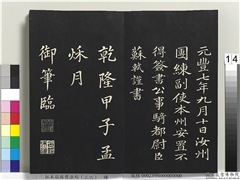 元豐七年九月十日汝州
團練副使本州安置不
得簽書公事騎都尉臣
蘇軾謹書
乾隆甲子孟
秌月
御筆臨
14